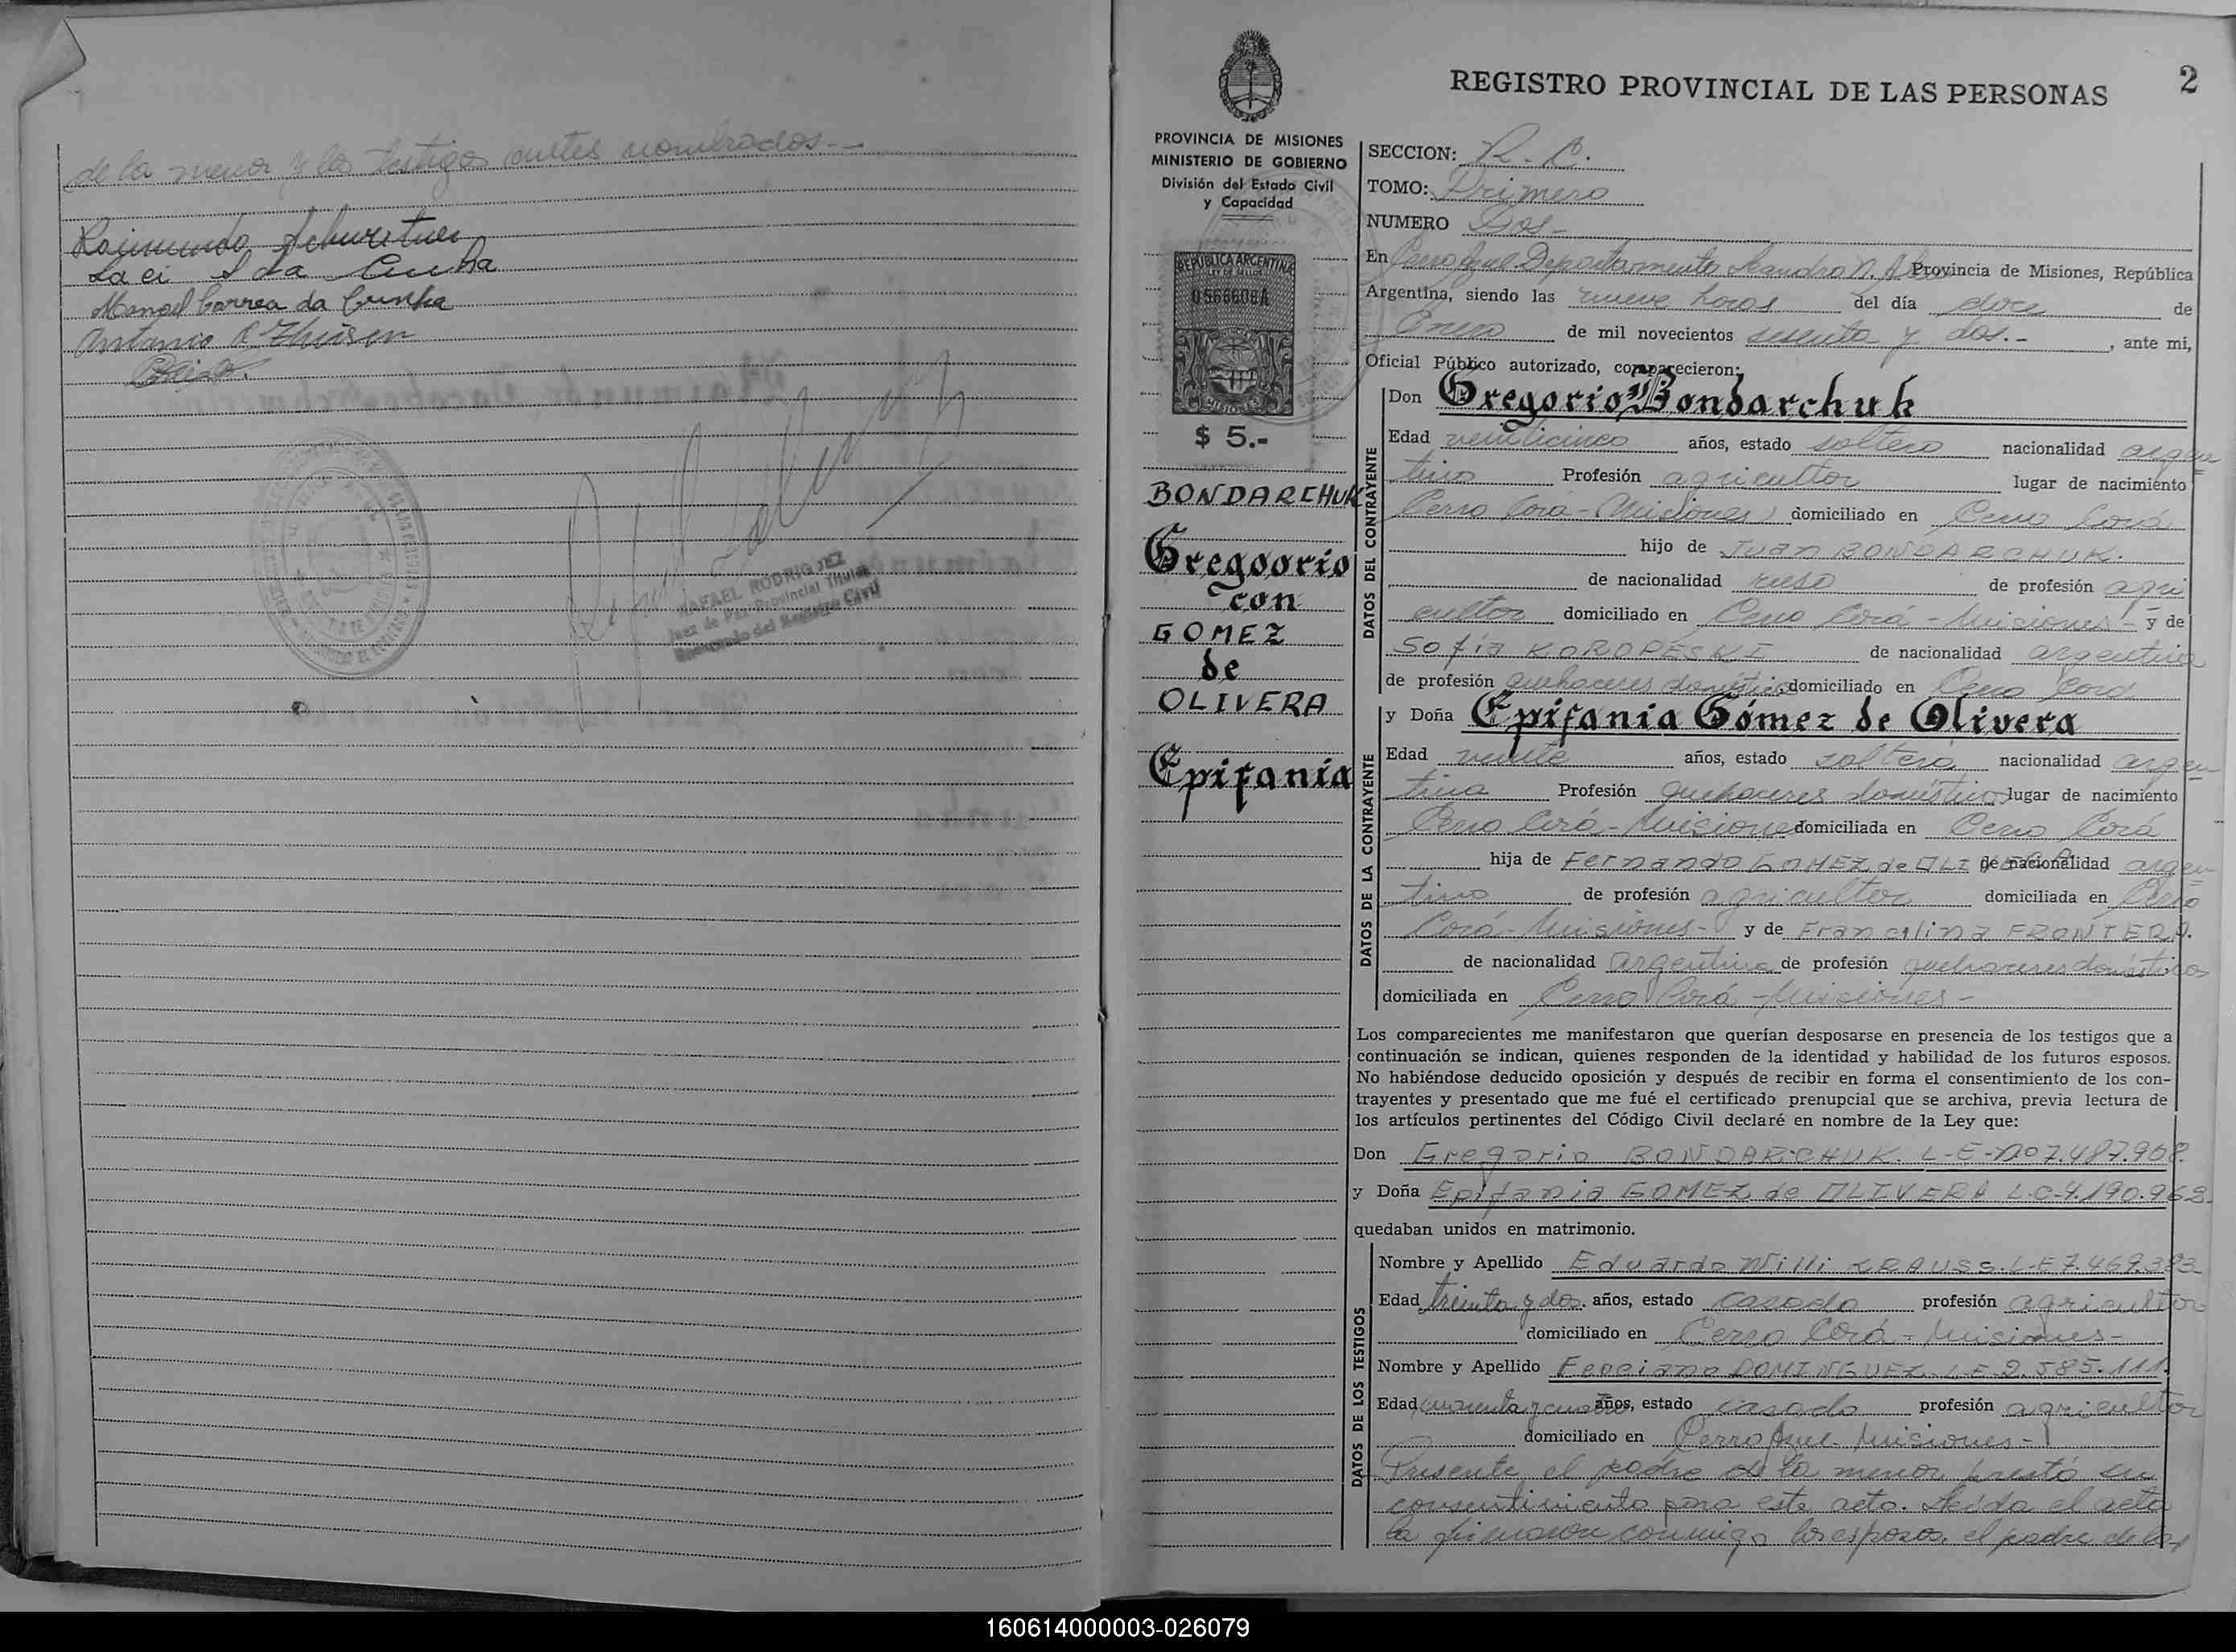 de la menor y los testigos antes nombrados.-
Raimundo
Laci da Cunha
Manoel Correa da Cunha
Antonio
RAFAEL RODRIGUEZ
Juez de Paz Provincial Titular
Encargado del Registro Civil
2
REGISTRO PROVINCIAL DE LAS PERSONAS
PROVINCIA DE MISIONES
MINISTERIO DE GOBIERNO
División del Estado Civil
y Capacidad
REPUBLICA ARGENTINA
LEY DE SELLOS
0566608A
MISIONES
$ 5.-
BONDARCHUK
Gregoorio
con
GOMEZ
de
OLIVERA
Epifania
SECCION: R. C.
TOMO: Primero
NUMERO Dos-
En Cerro Azul Departamento Leandro N. Alem Provincia de Misiones, República
Argentina, siendo las nueve horas del día doce de
Enero de mil novecientos sesenta y dos.- , ante mi,
Oficial Público autorizado, comparecieron:
DATOS DEL CONTRAYENTE
Don Gregorio Bondarchuk
Edad veinticinco años, estado soltero nacionalidad argen
tino Profesión agricultor lugar de nacimiento
Cerro Corá - Misiones domiciliado en Cerro Corá
hijo de Juan BONDARCHUK.
de nacionalidad ruso de profesión agri
cultor domiciliado en Cerro Corá - Misiones - y de
Sofía KOROPESKI de nacionalidad argentina
de profesión quehaceres domésticos, domiciliado en Cerro Corá
DATOS DE LA CONTRAYENTE
y Doña Epifania Gómez de Olivera
Edad veinte años, estado soltera nacionalidad argen
tina Profesión quehaceres domésticos lugar de nacimiento
Cerro Corá - Misiones domiciliada en Cerro Corá
hija de Fernando GOMEZ de OLIVERA de nacionalidad argen
tino de profesión agricultor domiciliada en Cerro
Corá - Misiones - y de Francelina FRONTERA.
de nacionalidad argentina de profesión quehaceres domésticos
domiciliada en Cerro Corá - Misiones -
Los comparecientes me manifestaron que querían desposarse en presencia de los testigos que a
continuación se indican, quienes responden de la identidad y habilidad de los futuros esposos.
No habiéndose deducido oposición y después de recibir en forma el consentimiento de los con-
trayentes y presentado que me fué el certificado prenupcial que se archiva, previa lectura de
los artículos pertinentes del Código Civil declaré en nombre de la Ley que:
Don Gregorio BONDARCHUK. L-E-nº 7.487.908.
y Doña Epifania GOMEZ de OLIVERA L-C-4.190.962.
quedaban unidos en matrimonio.
DATOS DE LOS TESTIGOS
Nombre y Apellido Eduardo Willi KRAUSS. L-E 7.469.383
Edad treinta y dos. años, estado casado profesión agricultor
domiciliado en Cerro Corá - Misiones -
Nombre y Apellido Feleciano DOMINGUEZ. L-E-2.585.111.
Edad cuarenta y cuatro años, estado casado profesión agricultor
domiciliado en Cerro Azul - Misiones -
Presente el padre de la menor prestó su
consentimiento para este acto. Leída el acta
la firmaron conmigo los esposos, el padre de la
160614000003-026079